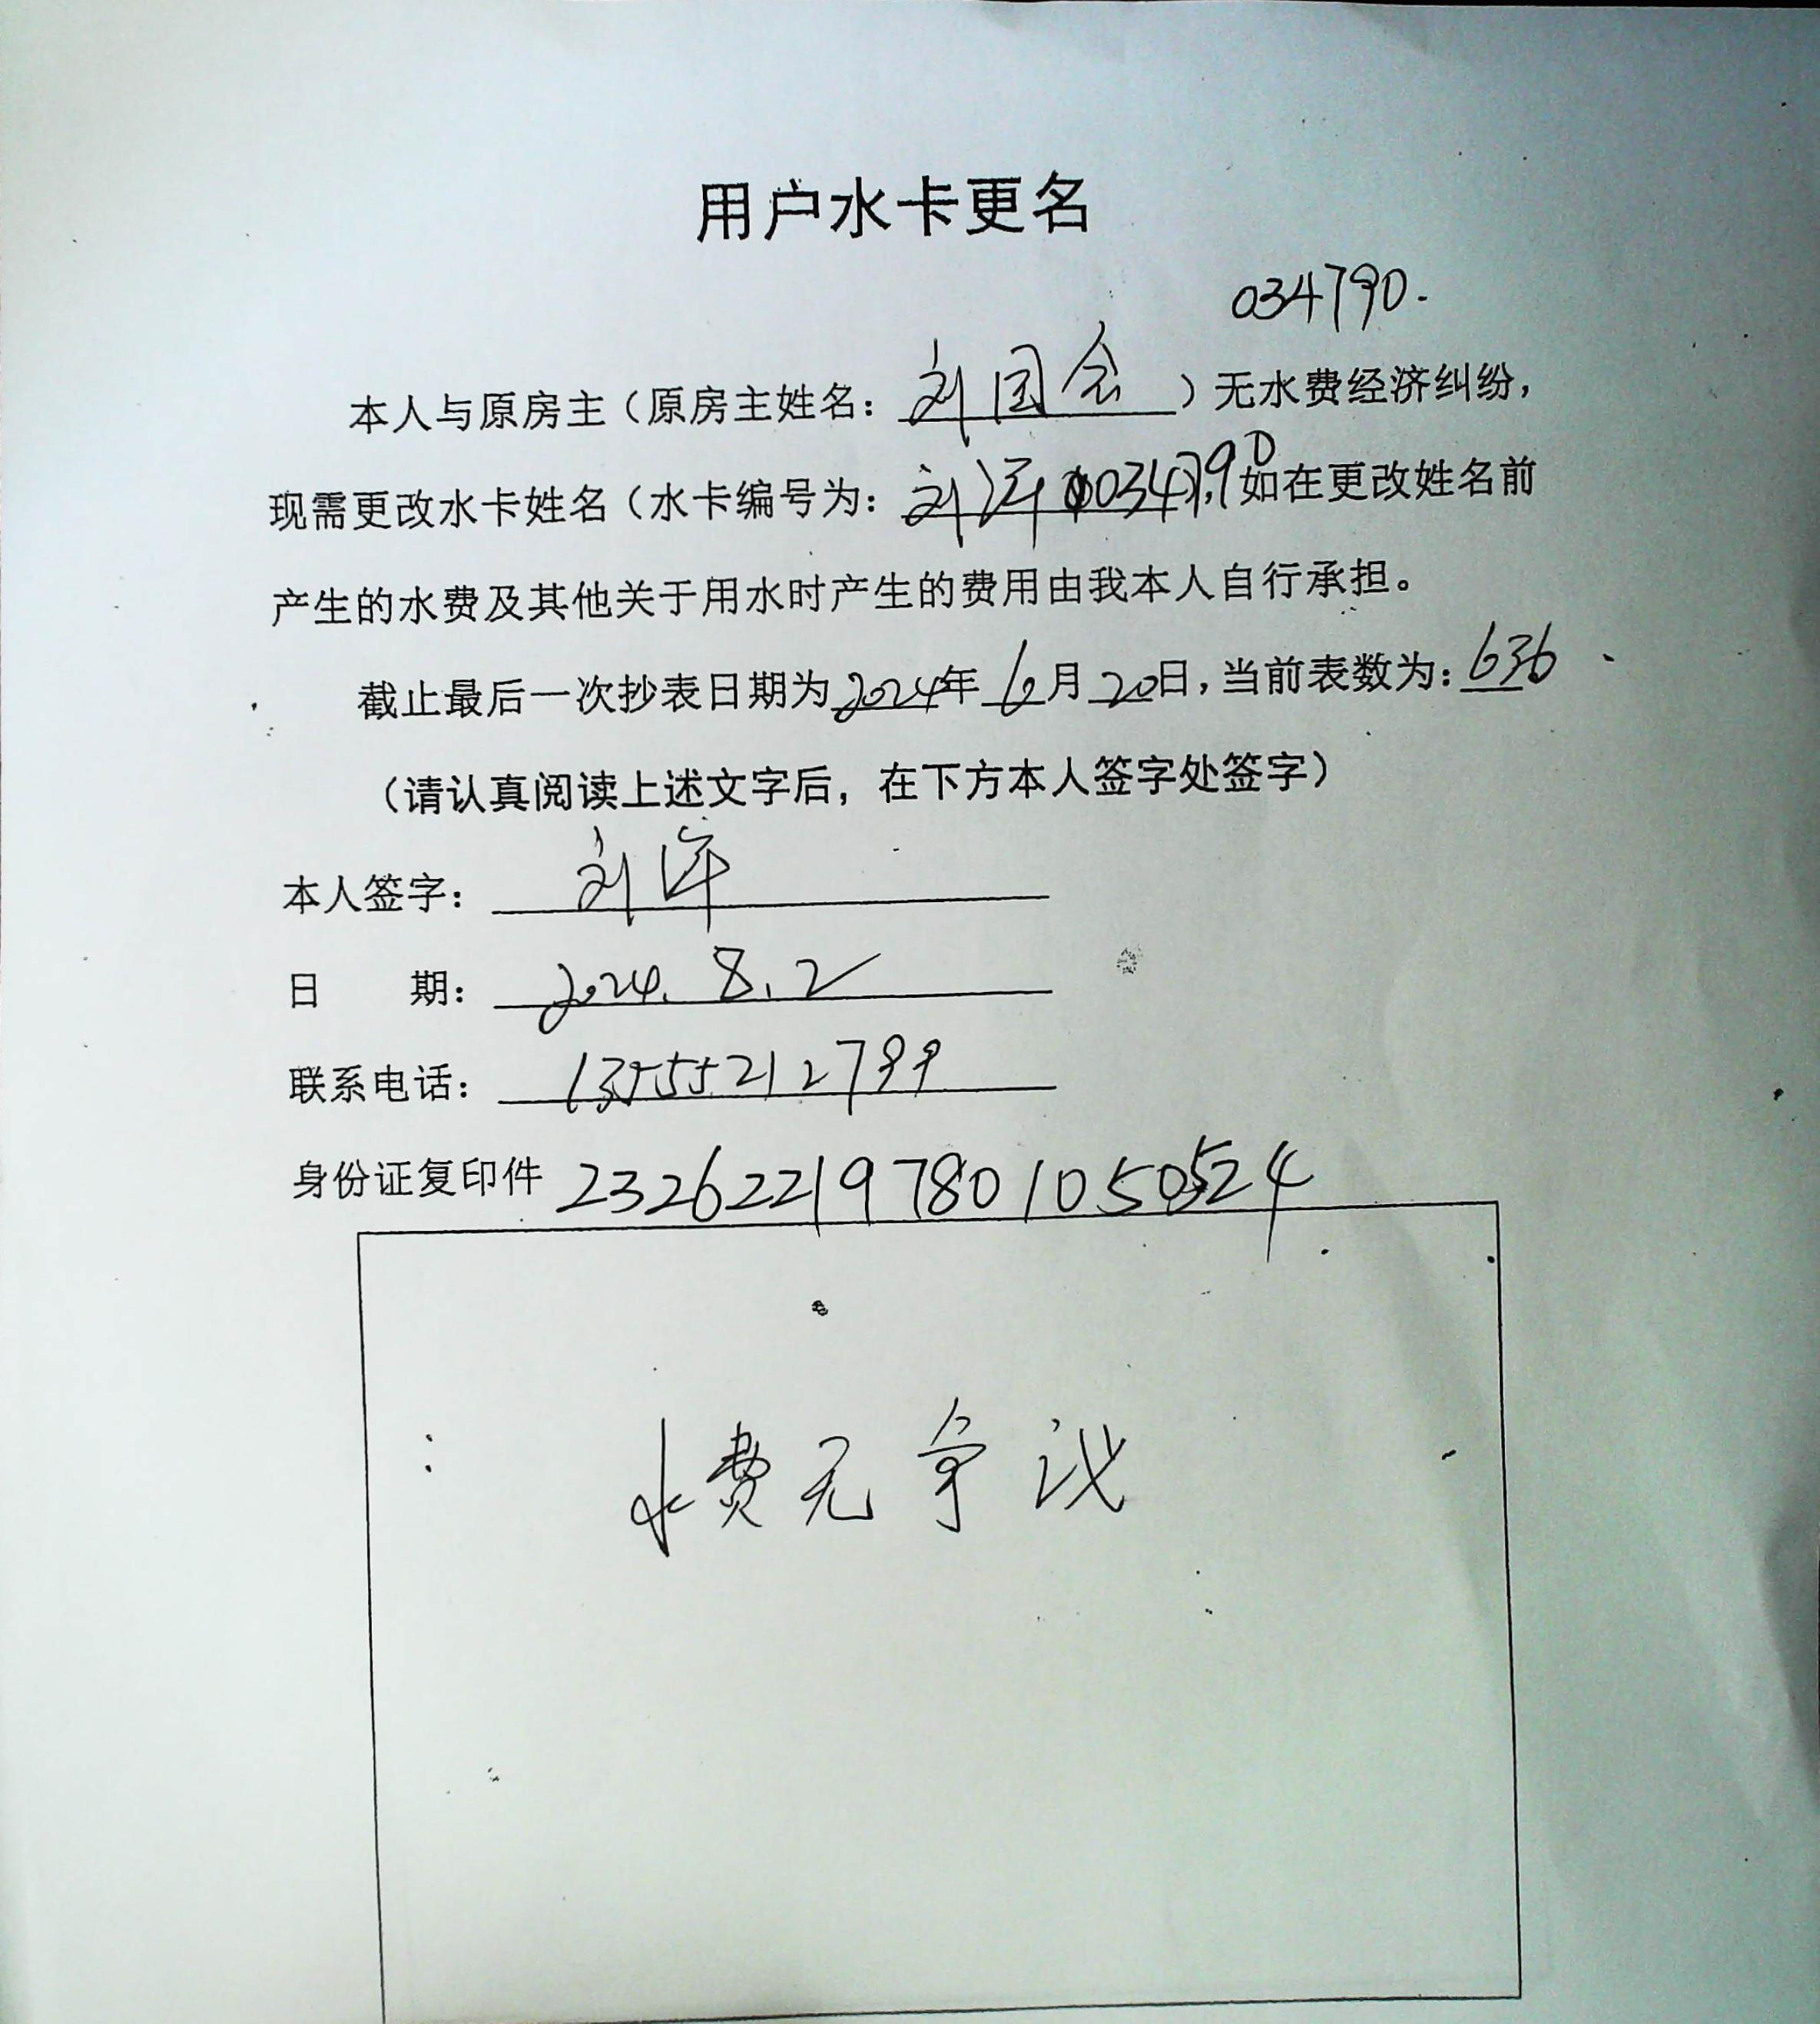 用户水卡更名
034790.
本人与原房主（原房主姓名：刘国会）无水费经济纠纷，
现需更改水卡姓名（水卡编号为：刘洋034790如在更改姓名前
产生的水费及其他关于用水时产生的费用由我本人自行承担。
截止最后一次抄表日期为2024年6月20日，当前表数为：636
（请认真阅读上述文字后，在下方本人签字处签字）
本人签字：刘洋
日 期：2024.8.2
联系电话：13555212799
身份证复印件 232622197801050524
水费无争议